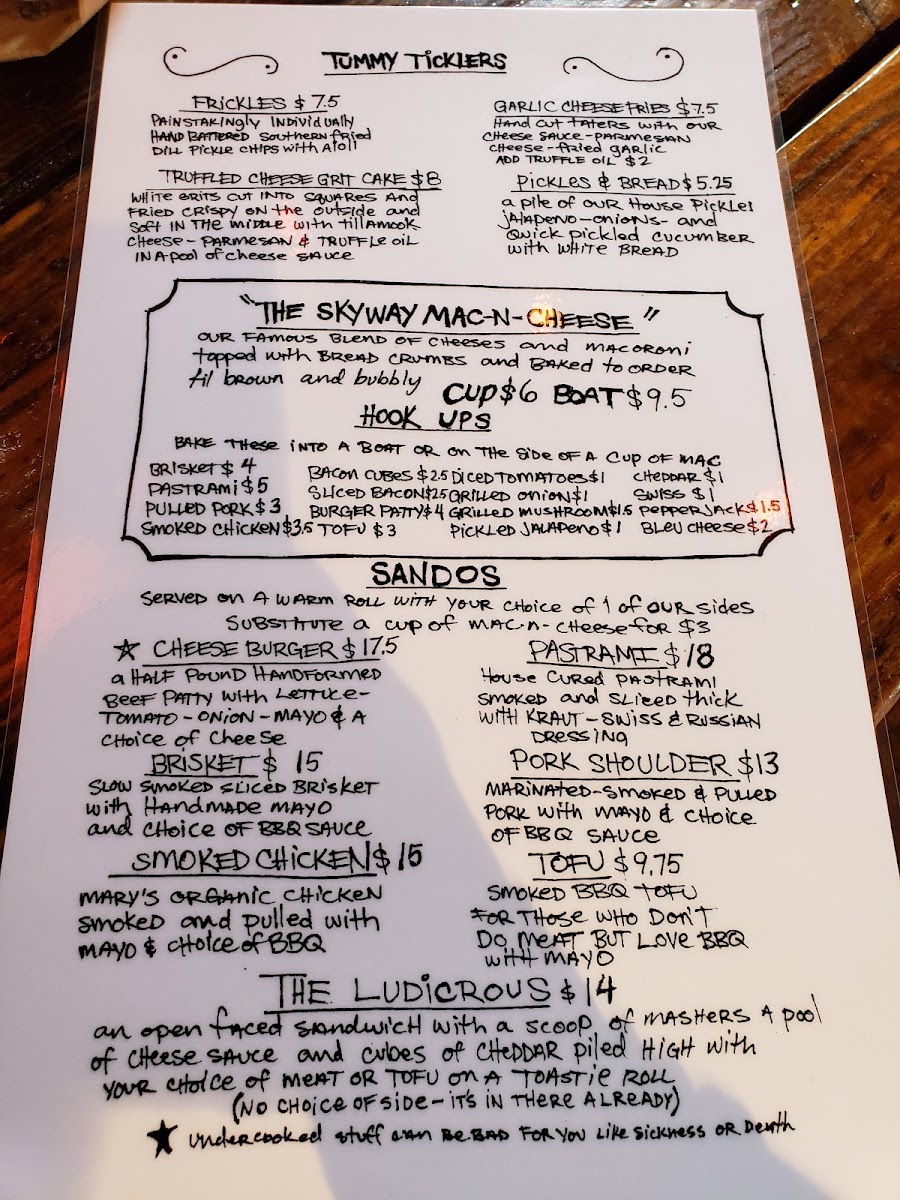 TUMMY TICKLERS
FRICKLES $7.5
PAINSTAKINGLY INDIVIDUALLY
HAND BATTERED SOUTHERN FRIED
DILL PICKLE CHIPS WITH AIOLI
TRUFFLED CHEESE GRIT CAKE $8
WHITE GRITS CUT INTO SQUARES AND
FRIED CRISPY ON the OUTSIDE and
SOFT IN THE MIDDLE WITH TILLAMOOK
CHEESE - PARMESAN & TRUFFLE OIL
IN A POOL OF CHEESE SAUCE
GARLIC CHEESE FRIES $7.5
HAND CUT TATERS WITH OUR
CHEESE SAUCE - PARMESAN
CHEESE - FRIED GARLIC
ADD TRUFFLE OIL $2
PICKLES & BREAD $5.25
a PILE OF OUR HOUSE PICKLES
JALAPENO - ONIONS - and
QUICK PICKLED CUCUMBER
WITH WHITE BREAD
"THE SKYWAY MAC-N-CHEESE"
OUR FAMOUS BLEND OF CHEESES and MACORONI
topped with BREAD CRUMBS and BAKED to ORDER
til brown and bubbly CUP $6 BOAT $9.5
HOOK UPS
BAKE THESE INTO A BOAT OR ON THE SIDE OF A CUP OF MAC
BRISKET $4
PASTRAMI $5
PULLED PORK $3
SMOKED CHICKEN $3.5
BACON CUBES $2.5
SLICED BACON $2.5
BURGER PATTY $4
TOFU $3
DICED TOMATOES $1
GRILLED ONION $1
GRILLED MUSHROOM $1.5
PICKLED JALAPENO $1
CHEDDAR $1
SWISS $1
PEPPERJACK $1.5
BLEU CHEESE $2
SANDOS
SERVED ON A WARM ROLL WITH YOUR CHOICE OF 1 OF OUR SIDES
SUBSTITUTE a CUP OF MAC-N-CHEESE FOR $3
★ CHEESE BURGER $17.5
a HALF POUND HANDFORMED
BEEF PATTY WITH LETTUCE -
TOMATO - ONION - MAYO & A
CHOICE OF CHEESE
BRISKET $15
SLOW SMOKED SLICED BRISKET
with HANDMADE MAYO
and CHOICE OF BBQ SAUCE
SMOKED CHICKEN $15
MARY'S ORGANIC CHICKEN
SMOKED and PULLED with
MAYO & CHOICE OF BBQ
PASTRAMI $18
HOUSE CURED PASTRAMI
SMOKED and SLICED THICK
WITH KRAUT - SWISS & RUSSIAN
DRESSING
PORK SHOULDER $13
MARINATED - SMOKED & PULLED
PORK WITH MAYO & CHOICE
OF BBQ SAUCE
TOFU $9.75
SMOKED BBQ TOFU
FOR THOSE WHO DON'T
DO MEAT BUT LOVE BBQ
WITH MAYO
THE LUDICROUS $14
an open faced SANDWICH WITH a SCOOP of MASHERS A pool
of CHEESE SAUCE and CUBES of CHEDDAR piled HIGH with
YOUR CHOICE OF MEAT OR TOFU ON A TOASTIE ROLL
(NO CHOICE OF SIDE - IT'S IN THERE ALREADY)
★ undercooked stuff can BE BAD FOR YOU LIKE SICKNESS OR DEATH